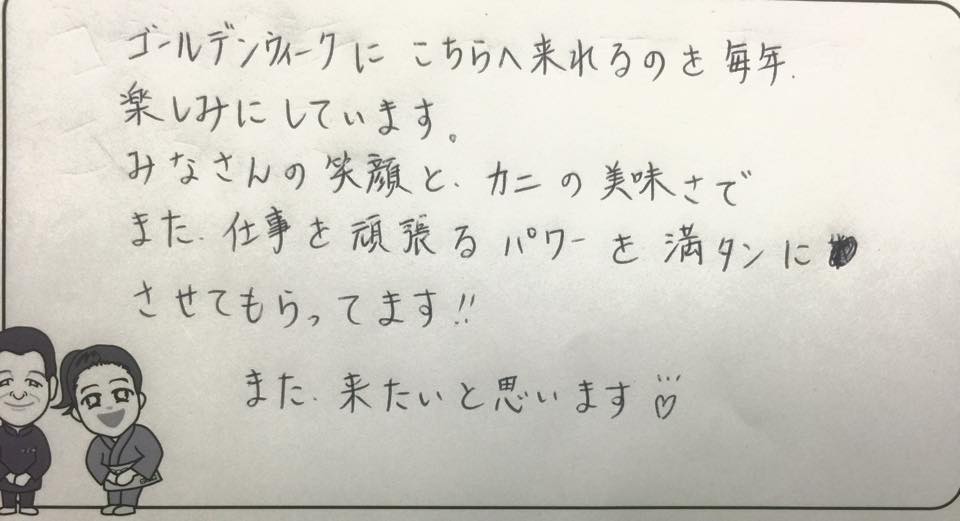 ゴールデンウィークに こちらへ来れるのを毎年、
楽しみにしています。
みなさんの笑顔と、カニの美味さで
また、仕事を頑張るパワーを満タンに
させてもらってます!!
また、来たいと思います♡